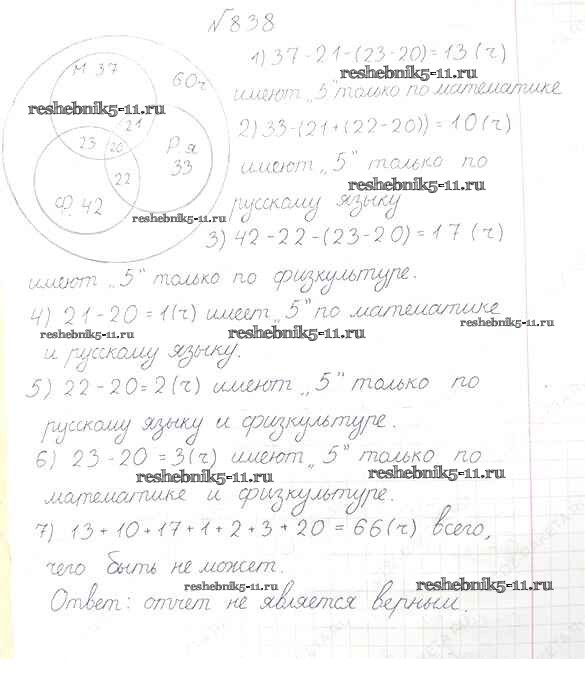 №838
М 37
60ч
1) 37-21-(23-20)=13(ч)
reshebnik5-11.ru
reshebnik5-11.ru
имеют „5" только по математике
21
2) 33-(21+(22-20))=10(ч)
23 20 Ря
33
имеют „5" только по
22
reshebnik5-11.ru
Ф. 42
reshebnik5-11.ru
русскому языку
3) 42-22-(23-20)=17(ч)
имеют „5" только по физкультуре.
4) 21-20=1(ч) имеет „5" по математике
reshebnik5-11.ru
reshebnik5-11.ru
reshebnik5-11.ru
и русскому языку.
5) 22-20=2(ч) имеют „5" только по
русскому языку и физкультуре.
6) 23-20=3(ч) имеют „5" только по
reshebnik5-11.ru
reshebnik5-11.ru
математике и физкультуре.
7) 13+10+17+1+2+3+20=66(ч) всего,
чего быть не может.
reshebnik5-11.ru
reshebnik5-11.ru
Ответ: отчет не является верным.